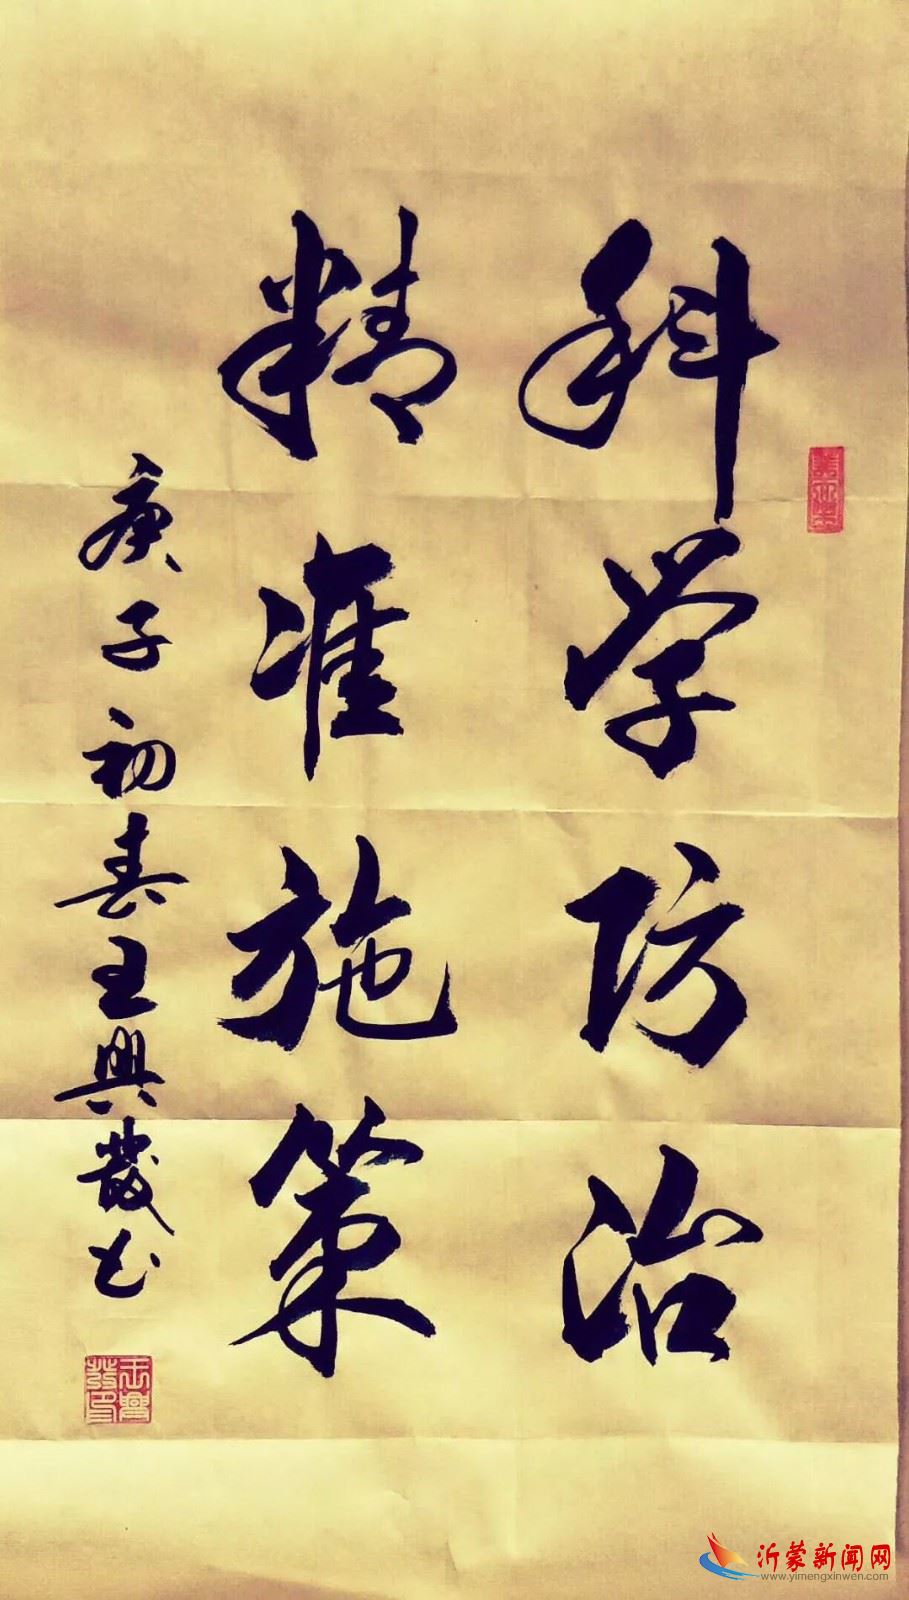 科学防治
精准施策
庚子初春王興發书
王興發印
沂蒙新闻网
www.yimengxinwen.com